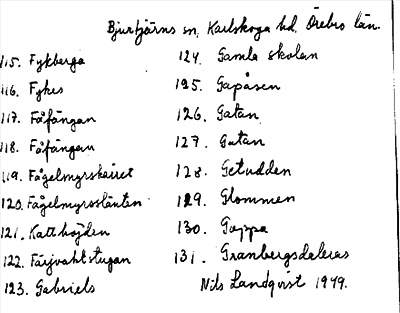 Bjurtjärns sn, Karlskoga hd, Örebro län.
115. Fykberga
116. Fykes
117. Fåfängan
118. Fåfängan
119. Fågelmyrsskäret
120. Fågelmyrsslänten
121. Katthöjden
122. Färjvaktstugan
123. Gabriels
124. Gamla skolan
125. Gapåsen
126. Gatan
127. Gatan
128. Getudden
129. Glommen
130. Goppa
131. Granbergsdaleras
Nils Landqvist 1949.